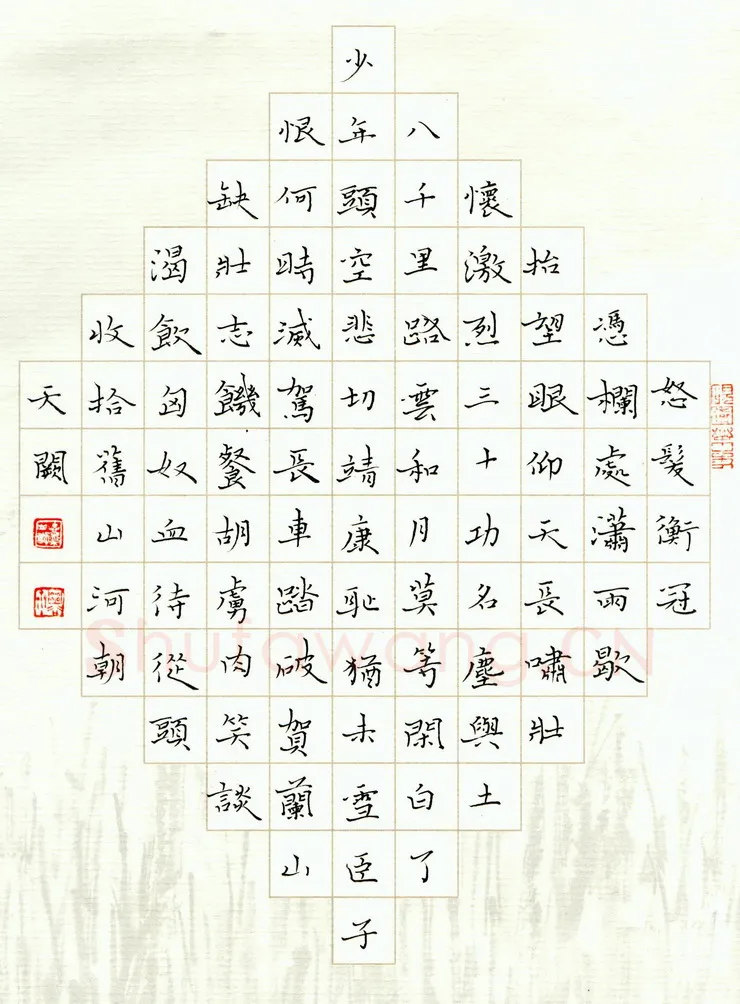 怒髮衝冠
憑欄處瀟雨歇
抬望眼仰天長嘯壯
懷激烈三十功名塵與土
八千里路雲和月莫等閑白了
少年頭空悲切靖康耻猶未雪臣子
恨何時滅駕長車踏破賀蘭山
缺壯志饑餐胡虜肉笑談
渴飲匈奴血待從頭
收拾舊山河朝
天闕
Shufawang.CN